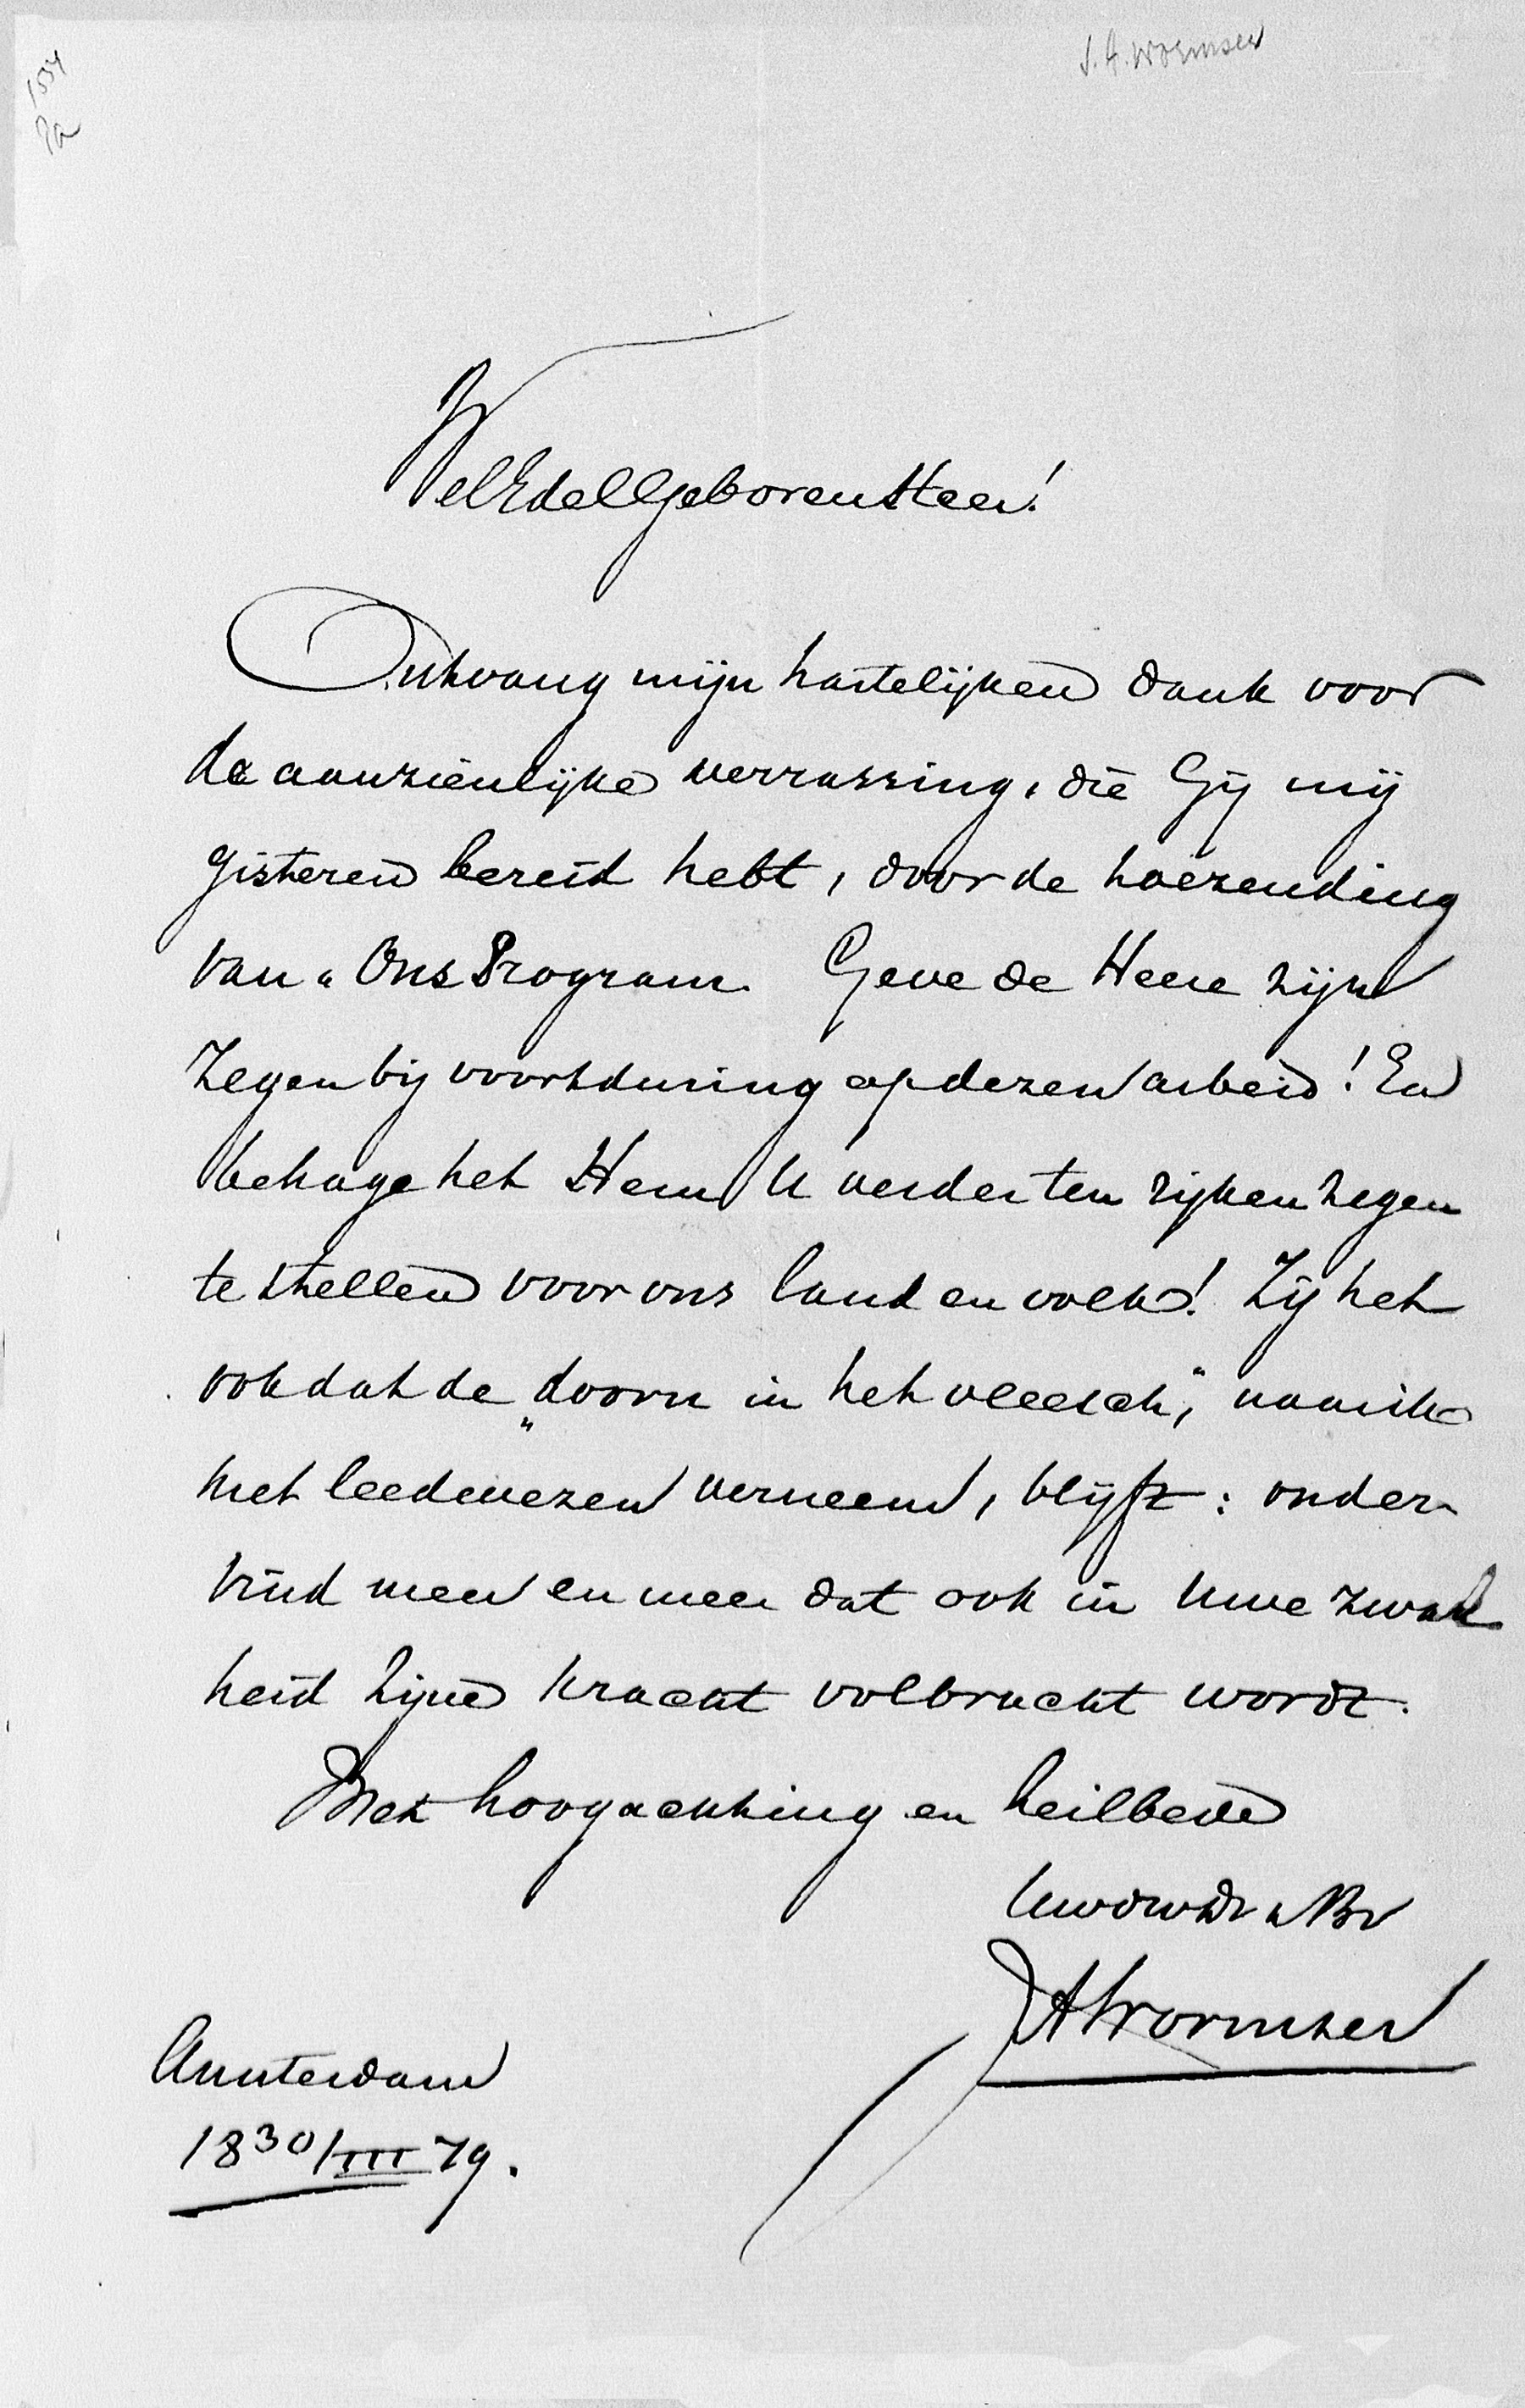 J. A. Wormser
1554
WelEdelGeboren Heer!
Ontvang mijn hartelijken dank voor
de aanzienlijke verrassing, die Gij mij
gisteren bereid hebt, door de toezending
van "Ons Program. Geve de Heere zijn
zegen bij voortduring op dezen arbeid! En
behage het Hem U verder ten rijken zegen
te stellen voor ons land en volk! Zij het
ook dat de „doorn in het vleesch", naar ik
met leedwezen verneem, blijft: onder-
vind meer en meer dat ook in Uwe zwak
heid Zijne kracht volbracht wordt.
Met hoogachting en heilbede
JAWormser
Amsterdam
18 30/III 79.